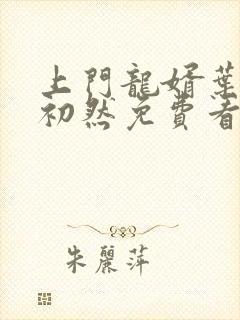 上門龍婿葉
初然免費看
朱麗萍